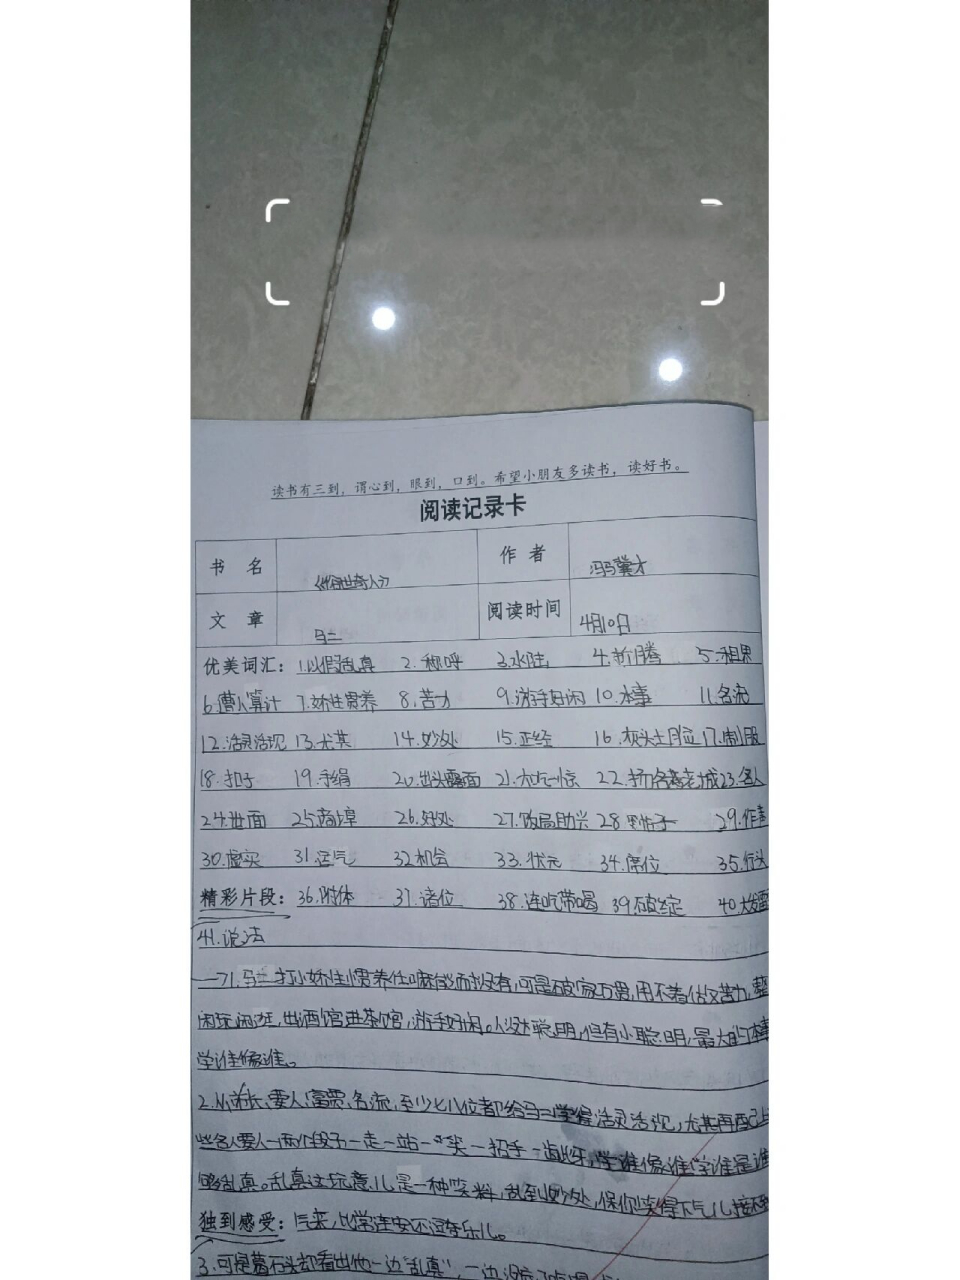 读书有三到，谓心到，眼到，口到。希望小朋友多读书，读好书。
阅读记录卡
书 名 《俗世奇人》 作 者 冯骥才
文 章 马二 阅读时间 4月10日
优美词汇：1.以假乱真 2.称呼 3.水陆 4.折腾 5.租界
6.遭人算计 7.娇生惯养 8.苦力 9.游手好闲 10.本事 11.名流
12.活灵活现 13.尤其 14.妙处 15.正经 16.灰头土脸 17.制服
18.扣子 19.手绢 20.出头露面 21.大吃一惊 22. 23.名人
24.世面 25.商埠 26.好处 27.饭局助兴 28.黑帖子 29.作
30.虚实 31.运气 32.机会 33.状元 34.席位 35.行头
精彩片段：36.附体 37.诸位 38.连吃带喝 39.破绽 40.大发
41.说法
1.马二打小娇生惯养任嘛能而没有，可是破家万贯，用不着估又苦力，整
闲玩闲逛，出酒馆进茶馆，游手好闲。人没大聪明，但有小聪明，最大的本事
学谁像谁。
2.从市长、要人、富贾、名流，至少七八位都给马二学得活灵活现，尤其再配上
些名人要人一两个段子一走一站一笑一招手一龇牙，学谁像谁，学谁是谁
够乱真。乱真这玩意儿是一种笑料，乱到妙处，保你笑得下气儿接不
独到感受：气来，比常连安还逗乐儿。
3.可是葛石头却看出他一边“乱真”，一边